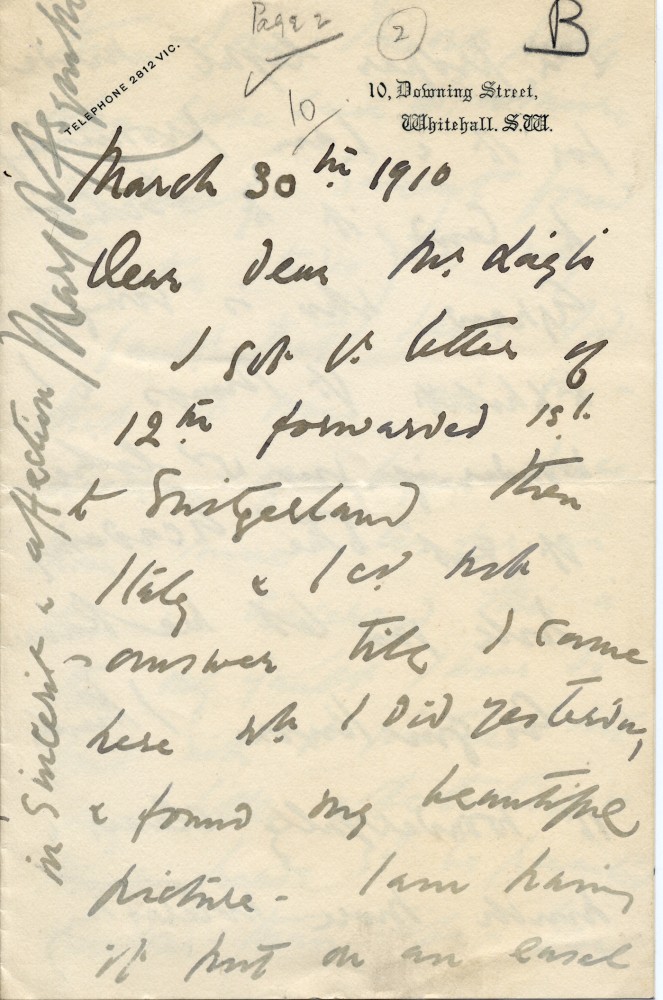 Page 2
2
B
10/
TELEPHONE 2812 VIC.
10, Downing Street,
Whitehall. S.W.
March 30th 1910
Dear Dear Mr
I got yr letter of
12th forwarded 1st
to Switzerland then
Italy & I cd not
answer till I came
here wh I did yesterday,
& found my beautiful
picture - I am having
it put on an easel
in sincerity & affection Margot Asquith